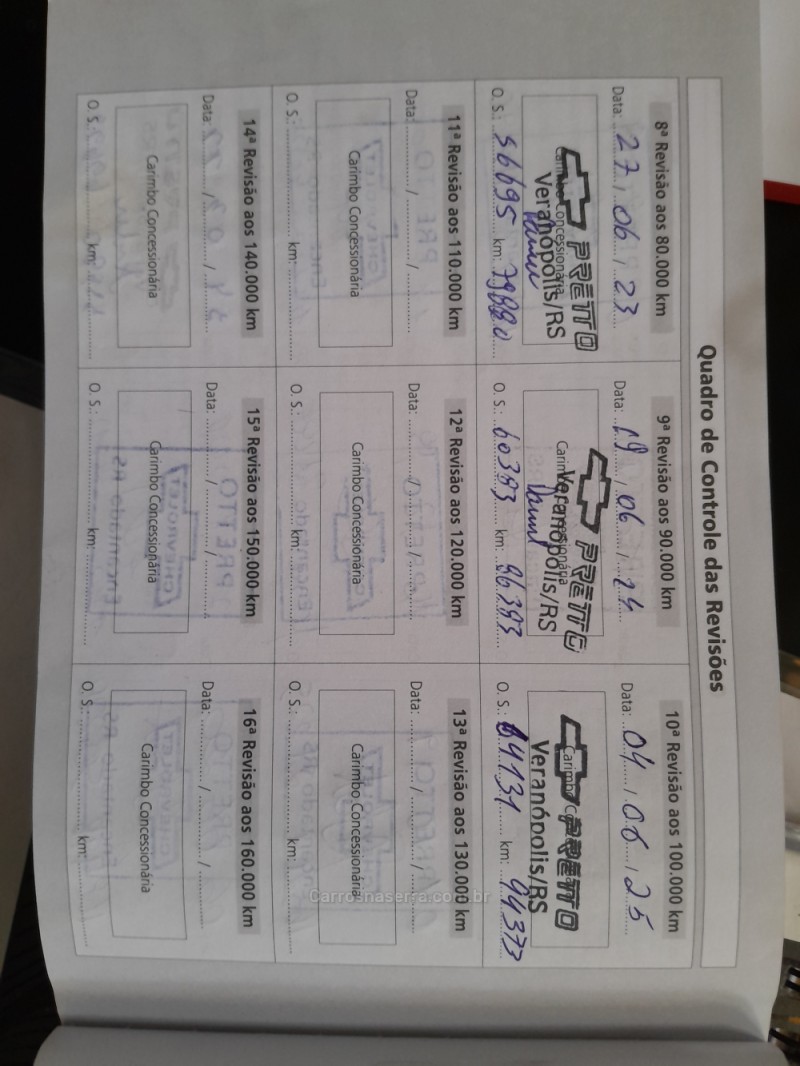 Quadro de Controle das Revisões
8ª Revisão aos 80.000 km
Data: 27 / 06 / 23
Carimbo Concessionária
PRETTO
Veranópolis/RS
O. S.: 56695 km: 79880
9ª Revisão aos 90.000 km
Data: 19 / 06 / 24
Carimbo Concessionária
PRETTO
Veranópolis/RS
O. S.: 60393 km: 86393
10ª Revisão aos 100.000 km
Data: 04 / 06 / 25
PRETTO
Veranópolis/RS
O. S.: 64131 km: 94373
11ª Revisão aos 110.000 km
Data: / /
Carimbo Concessionária
O. S.: km:
12ª Revisão aos 120.000 km
Data: / /
Carimbo Concessionária
O. S.: km:
13ª Revisão aos 130.000 km
Data: / /
Carimbo Concessionária
O. S.: km:
14ª Revisão aos 140.000 km
Data: / /
Carimbo Concessionária
O. S.: km:
15ª Revisão aos 150.000 km
Data: / /
Carimbo Concessionária
O. S.: km:
16ª Revisão aos 160.000 km
Data: / /
Carimbo Concessionária
O. S.: km:
Carrosnaserra.com.br